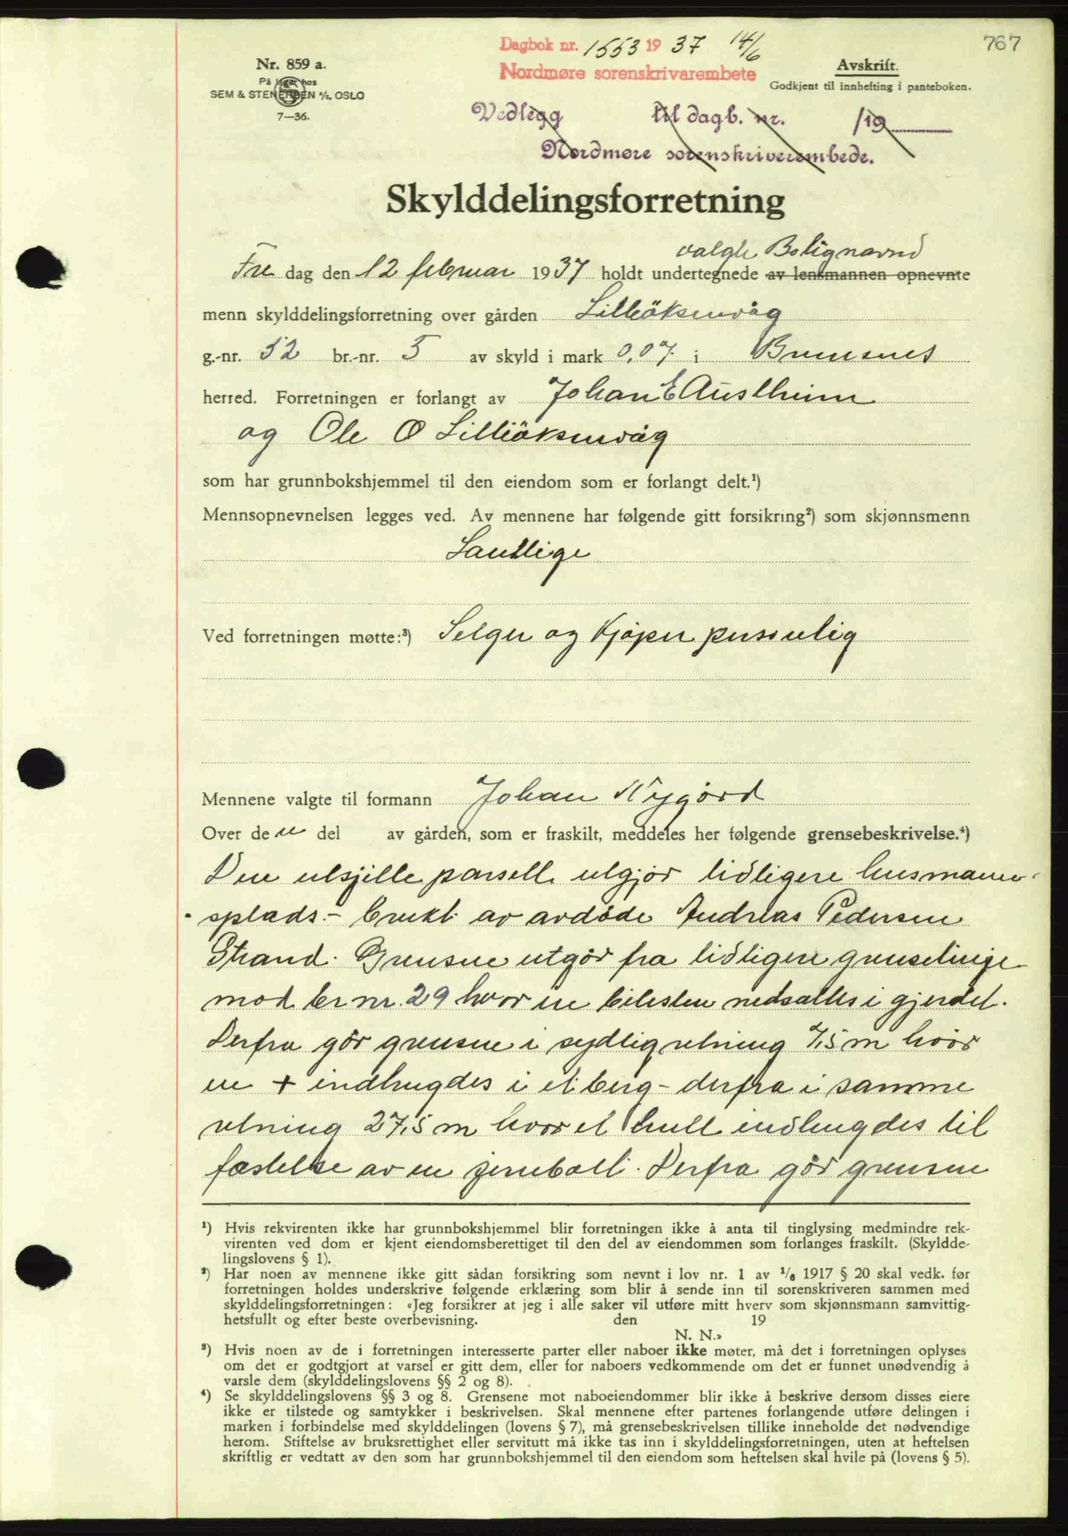 767
Dagbok nr. 1553 1937 14/6
Nordmøre sorenskrivarembete
Nr. 859 a.
På lager hos
SEM & STENERSEN A/S, OSLO
7—36.
Avskrift.
Godkjent til innhefting i panteboken.
Vedlegg til dagb. nr. /19
Nordmøre sorenskriverembede.
Skylddelingsforretning
valgte Bolignævnd
Fre dag den 12 februar 1937 holdt undertegnede av lensmannen opnevnte
menn skylddelingsforretning over gården Lilleöksenvåg
g.-nr. 52 br.-nr. 5 av skyld i mark 0,07 i Bremsnes
herred. Forretningen er forlangt av Johan E Austheim
og Ole O Lilleöksenvåg
som har grunnbokshjemmel til den eiendom som er forlangt delt.¹)
Mennsopnevnelsen legges ved. Av mennene har følgende gitt forsikring²) som skjønnsmenn
Samtlige
Ved forretningen møtte:³) Selger og Kjøper personlig
Mennene valgte til formann Johan Nygård
Over de n del av gården, som er fraskilt, meddeles her følgende grensebeskrivelse.⁴)
Den utsjilte parsell utgjør tidligere husmans-
splads - brukt av avdöde Andreas Pedersen
Strand. Grensene utgår fra tidligere grenselinje
mod br nr. 29 hvor en bitesten nedsattes i gjerdet.
Derfra går grensene i sydlig retning 7,5 m hvor
en + indhugdes i et berg - derfra i samme
retning 27,5 m hvor et hull indhugdes til
fæstelse av en jernbolt. Derfra går grensene
¹) Hvis rekvirenten ikke har grunnbokshjemmel blir forretningen ikke å anta til tinglysing medmindre rek-
virenten ved dom er kjent eiendomsberettiget til den del av eiendommen som forlanges fraskilt. (Skyldde-
lingslovens § 1).
²) Har noen av mennene ikke gitt sådan forsikring som nevnt i lov nr. 1 av 1/6 1917 § 20 skal vedk. før
forretningen holdes underskrive følgende erklæring som blir å sende inn til sorenskriveren sammen med
skylddelingsforretningen: «Jeg forsikrer at jeg i alle saker vil utføre mitt hverv som skjønnsmann samvittig-
hetsfullt og efter beste overbevisning. den 19
N. N.»
³) Hvis noen av de i forretningen interesserte parter eller naboer ikke møter, må det i forretningen oplyses
om det er godtgjort at varsel er gitt dem, eller for naboers vedkommende om det er funnet unødvendig å
varsle dem (skylddelingslovens §§ 2 og 8).
⁴) Se skylddelingslovens §§ 3 og 8. Grensene mot naboeiendommer blir ikke å beskrive dersom disses eiere
ikke er tilstede og samtykker i beskrivelsen. Skal mennene efter partenes forlangende utføre delingen i
marken i forbindelse med skylddelingen (lovens § 7), må grensebeskrivelsen tillike inneholde det nødvendige
herom. Stiftelse av bruksrettighet eller servitutt må ikke tas inn i skylddelingsforretningen, uten at heftelsen
skriftlig er vedtatt av den som har grunnbokshjemmel til den eiendom som heftelsen skal hvile på (lovens § 5).